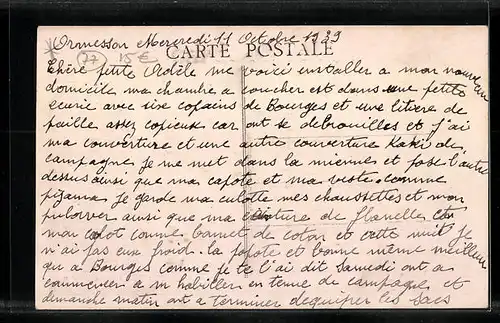 Ormesson Mercredi 11 Octobre 1939
CARTE POSTALE
77 15 €
Chère petite Adèle me voici installer a mon nouveau
domicile ma chambre a coucher est dans une petite
ecurie avec six copains de Bourges et une litiere de
paille assez copieuse car ont se debrouilles et j'ai
ma couverture et une autre couverture Kaki de
campagne je me met dans la mienne et pose l'autre
dessus ainsi que ma capote et ma veste. comme
pijama je garde ma culotte mes chaussettes et mon
pulover ainsi que ma ceinture de flanelle et
mon calot comme bonnet de coton et cette nuit je
n'ai pas eux froid. la popote et bonne même meilleur
qu a Bourges comme je te l'ai dit Samedi ont a
commencer a m habiller en tenue de campagne et
dimanche matin ont a terminer dequiper les sacs